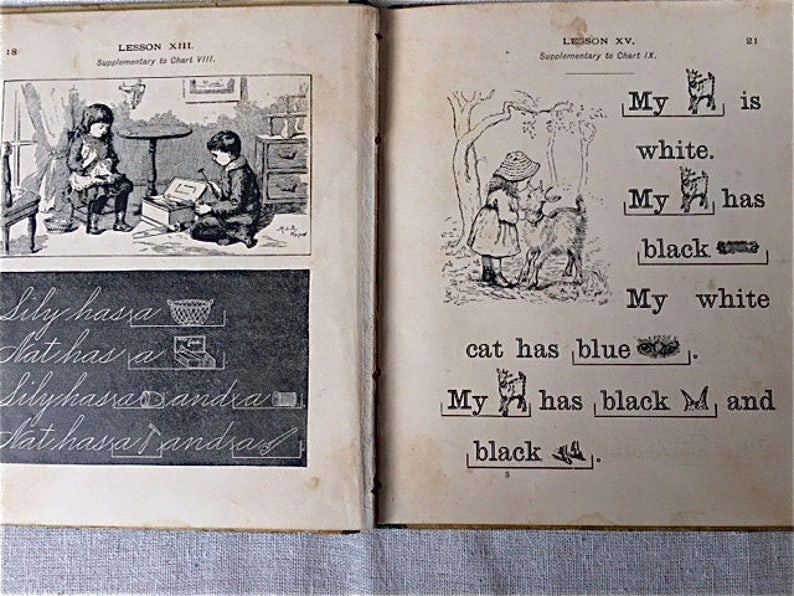 18
LESSON XIII.
Supplementary to Chart VIII.
Lily has a
Nat has a
Lily has a and a
Nat has a and a
LESSON XV.
21
Supplementary to Chart IX.
My is
white.
My has
black
My white
cat has blue .
My has black and
black .